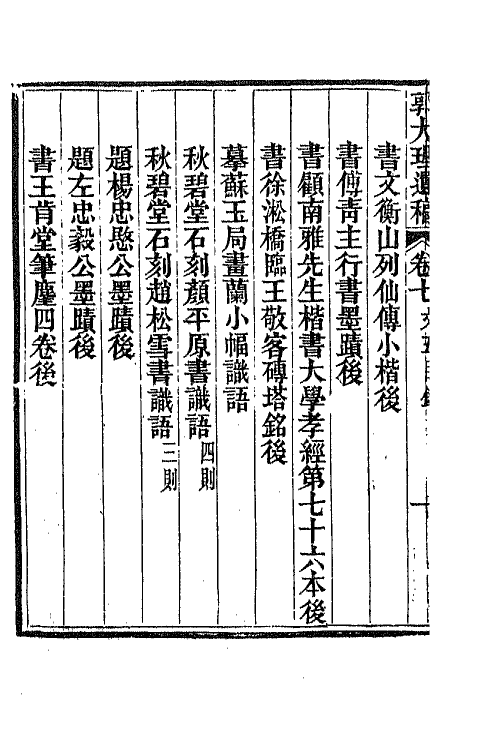 郭大理遺稿 卷七
書文衡山列仙傳小楷後
書傅靑主行書墨蹟後
書顧南雅先生楷書大學孝經第七十六本後
書徐淞橋臨王敬客磚塔銘後
摹蘇玉局畫蘭小幅識語
秋碧堂石刻顏平原書識語四則
秋碧堂石刻趙松雪書識語二則
題楊忠愍公墨蹟後
題左忠毅公墨蹟後
書王肯堂筆塵四卷後